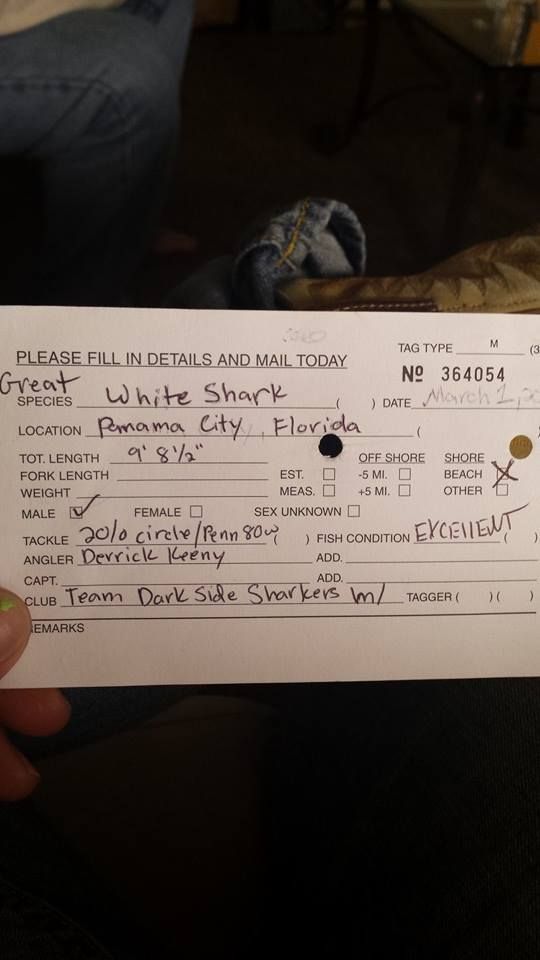 TAG TYPE M (3
PLEASE FILL IN DETAILS AND MAIL TODAY
Nº 364054
Great
SPECIES White Shark ( ) DATE March 1, 20
LOCATION Panama City, Florida (
TOT. LENGTH 9' 8½" OFF SHORE SHORE
FORK LENGTH EST. -5 MI. BEACH
WEIGHT MEAS. +5 MI. OTHER
MALE FEMALE SEX UNKNOWN
TACKLE 20/0 circle/Penn 80w ( ) FISH CONDITION EXCEllENT ( )
ANGLER Derrick Keeny ADD.
CAPT. ADD.
CLUB Team Dark Side Sharkers TAGGER ( )( )
EMARKS